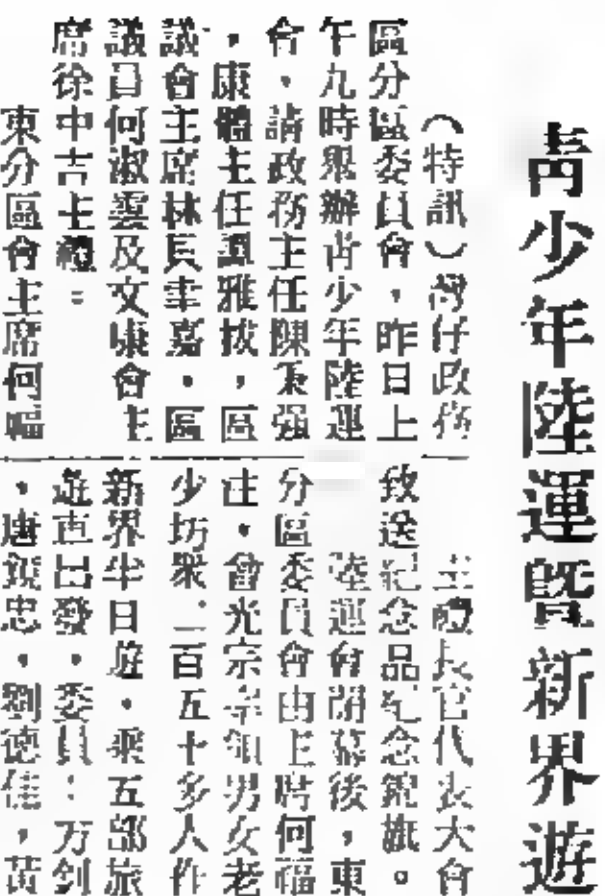 青少年陸運暨新界遊
（特訊）灣仔政務
區分區委員會，昨日上
午九時舉辦青少年陸運
會，請政務主任陳 强
，康體主任譚雅拔，區
議會主席林貝聿嘉，區
議員何淑雲及文康會主
席徐中吉主禮：
東分區會主席何
主禮長官代表大會
致送紀念品紀念錦旗。
陸運會開幕後，東
分區委員會由主席何福
注，曾光宗率領男女老
少坊眾二百五十多人作
新界半日遊，乘五部旅
遊車出發，委員：方創
，唐 忠，劉德佳，黃